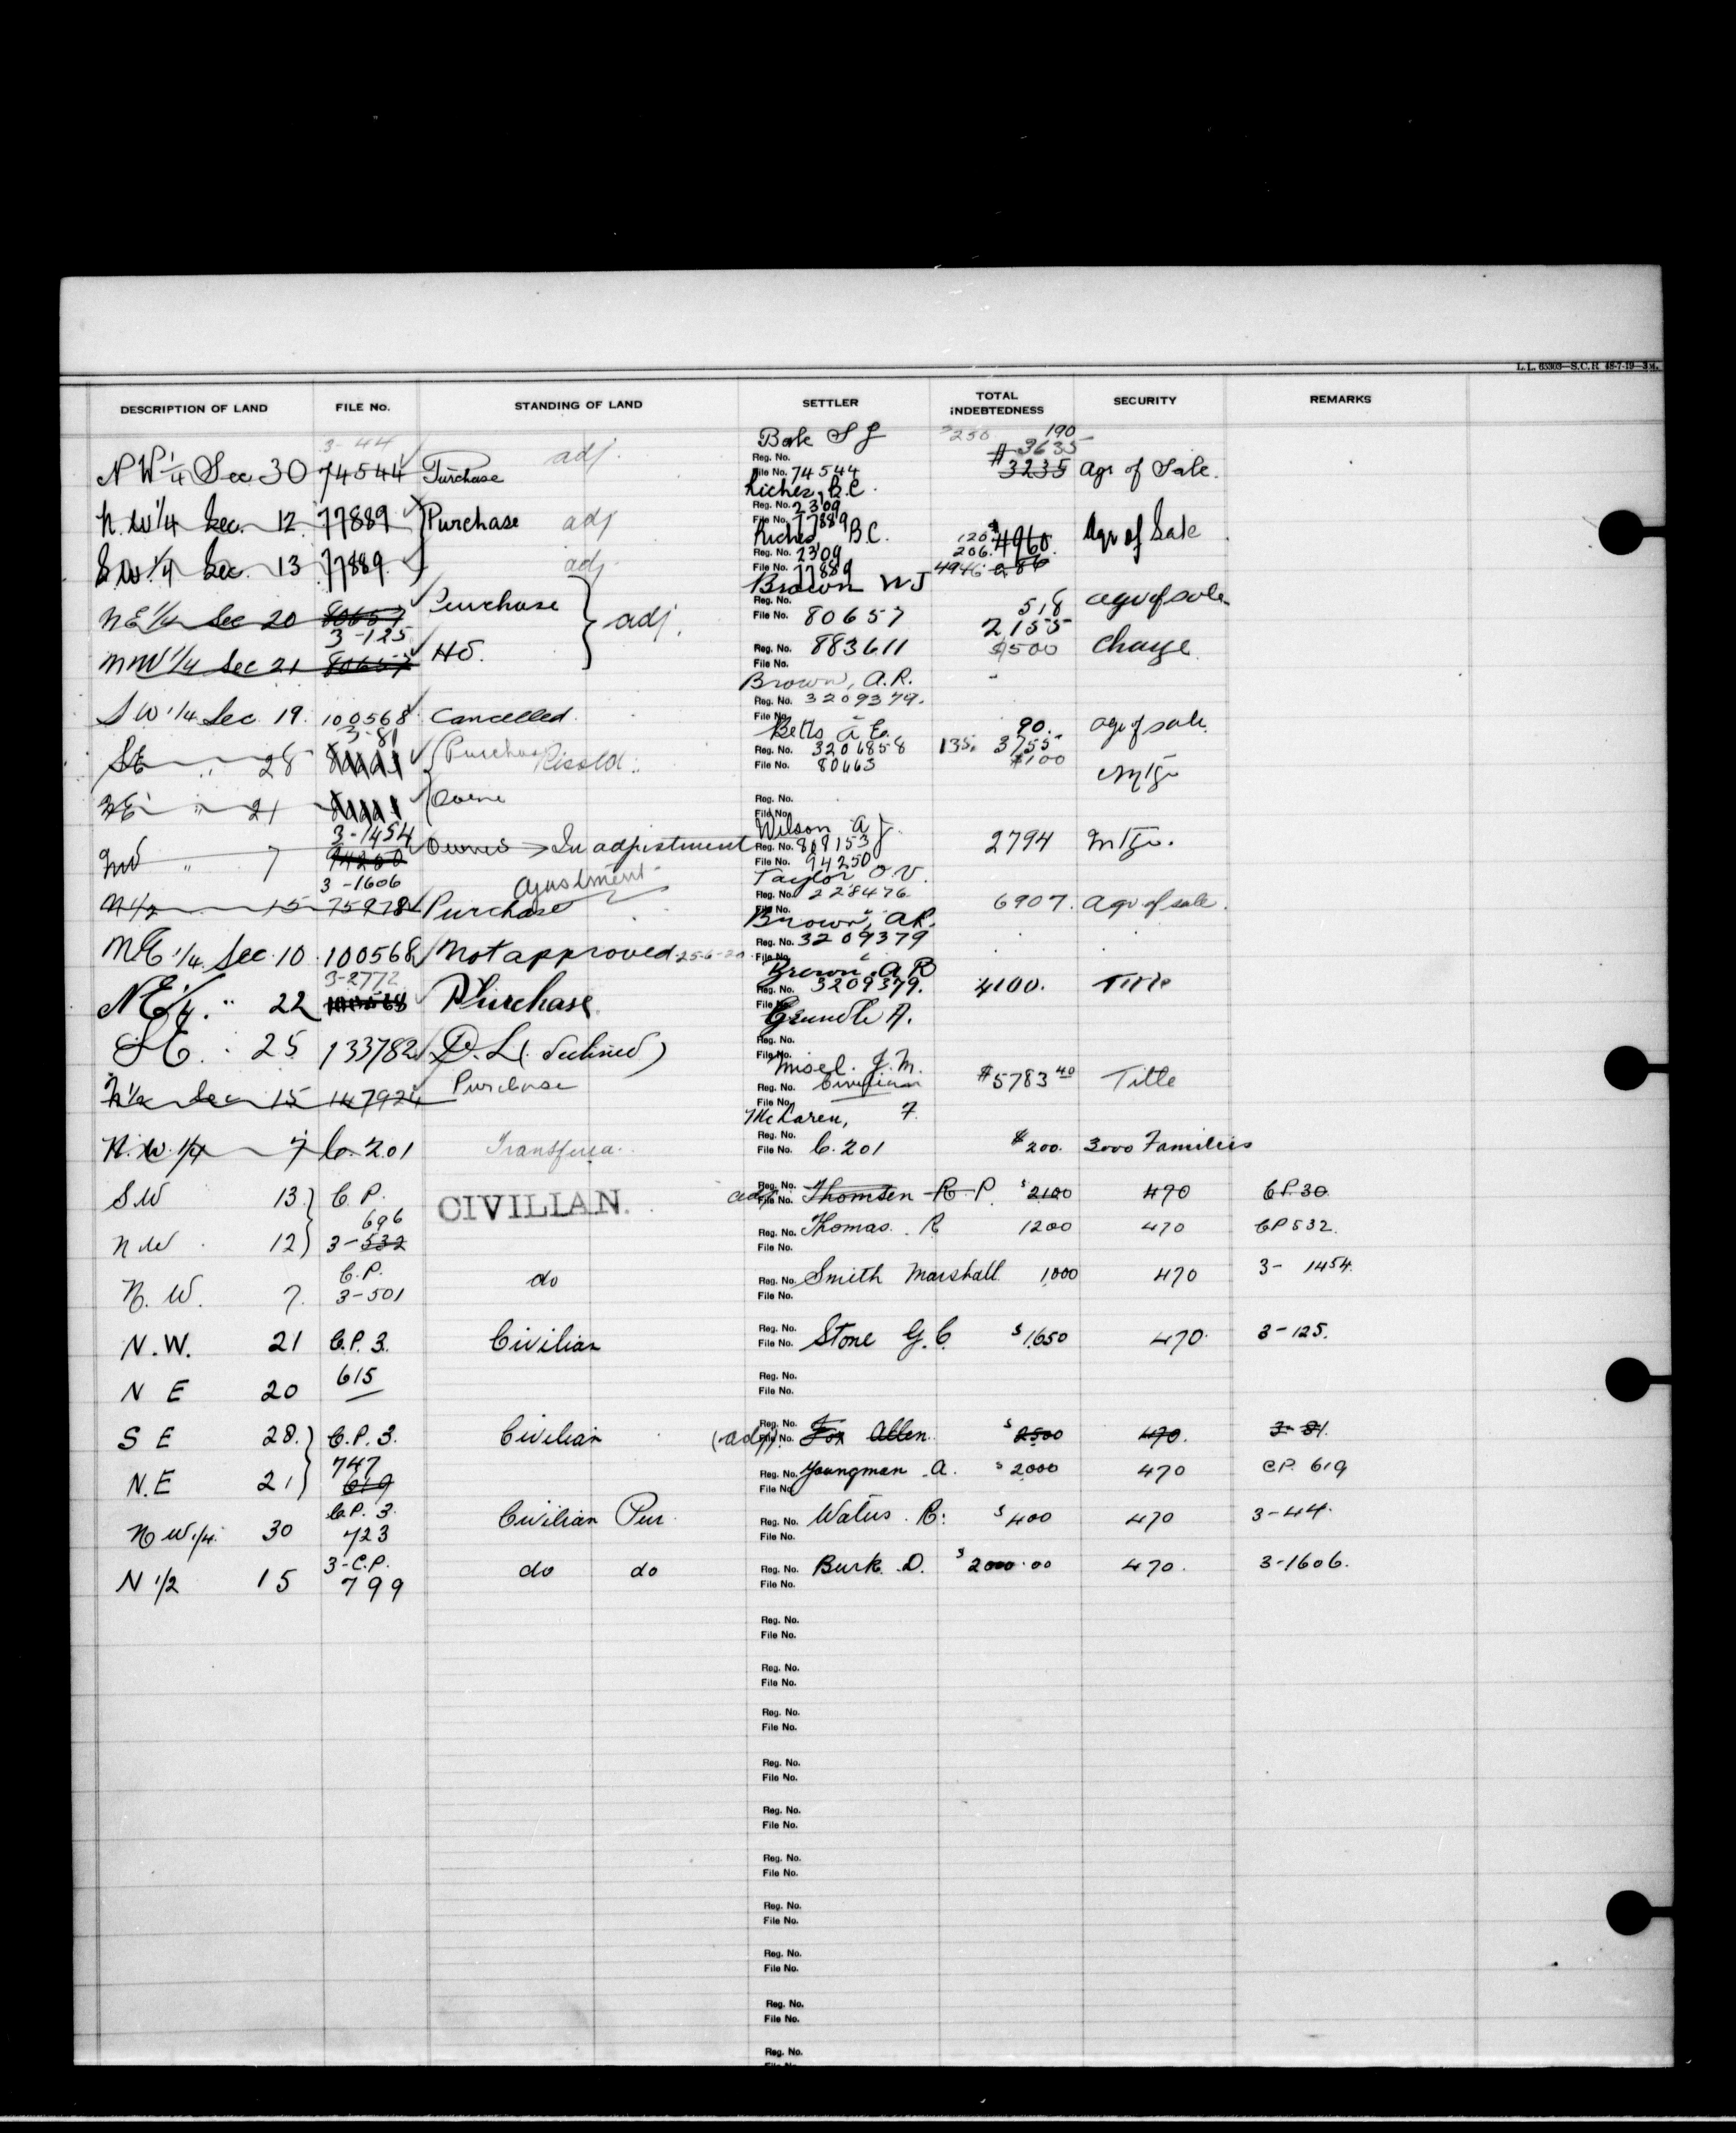 L.L. 65303—S.C.R. 48-7-19—3M.
DESCRIPTION OF LAND FILE No. STANDING OF LAND SETTLER TOTAL INDEBTEDNESS SECURITY REMARKS
3-44 adj. S J $250 190
Reg. No. 3635
N W 1/4 Sec 30 74544 Purchase File No. 74544 # 3235 Agr of Sale.
Riches, B.C.
Reg. No. 2309
N.W 1/4 Sec. 12. 77889 Purchase adj File No. 77889
Riches B.C. 120 $4960 Agr of Sale
Reg. No. 2309 206.
S.W. 1/4 Sec. 13 77889 adj. File No. 77889 4946
Brown W J
Reg. No. 518 agr of sale
NE 1/4 Sec 20 80657 Purchase adj. File No. 80657 2155
3-125
Reg. No. 883611 $500 Charge
NW 1/4 Sec 21 80657 File No.
Brown, A.R.
Reg. No. 3209379.
S W 1/4 Sec. 19. 100568 Cancelled. File No. "
3-81 Betts A E. 90. agr of sale.
SE " 28 Purchase Resold. Reg. No. 3206858 135. 3755
File No. 80663 $100
Mtge
NE " 21 Reg. No.
File No.
3-1454 Wilson A J.
Owner In adjustment Reg. No. 809153 2794 Mtge.
NW " 7 94250 File No. 94250
3-1606 Ajustment Taylor O.V.
N 1/2 15 75978 Purchase Reg. No. 228476 6907. Agr of sale.
File No. "
Brown, A.R.
Reg. No. 3209379
NE 1/4 Sec. 10. 100568 Not approved 25-6-20 File No. "
3-2772 Brown A R
NE 1/4. " 22 100568 Purchase Reg. No. 3209379. 4100. Title
File No.
Grundle A.
S E. 25 133782 D.L. (Declined) Reg. No.
File No.
Misel. J.M.
Purchase Reg. No. Civilian $5783 40 Title
N 1/2 Sec 15 File No.
McLaren, F.
Reg. No.
N.W. 1/4 7 C. 201 File No. C.201 $200. 3000 Families
S.W 13. C P. CIVILIAN. adj. Reg. No. File No. Thomsen R. P. $2100 470 CP.30
696
N W. 12 3-532 Reg. No. Thomas. R 1200 470 CP 532.
File No.
C.P.
N. W. 7. 3-501 do Reg. No. Smith Marshall 1,000 470 3- 1454.
File No.
N.W. 21 C.P. 3. Civilian Reg. No. File No. Stone G.C. $1650 470. 3-125.
615
N E 20 Reg. No.
File No.
S E 28. C.P. 3. Civilian (adj). Reg. No. File No. Fox Allen. $2500 470. 3-81.
747
N.E 21 619 Reg. No. Youngman A. $2000 470 CP. 619
File No.
C.P. 3.
N W 1/4. 30 723 Civilian Pur. Reg. No. R. $400 470 3-44.
File No.
3-C.P.
N 1/2 15 799 do do Reg. No. Burk. D. $2000.00 470. 3-1606.
File No.
Reg. No.
File No.
Reg. No.
File No.
Reg. No.
File No.
Reg. No.
File No.
Reg. No.
File No.
Reg. No.
File No.
Reg. No.
File No.
Reg. No.
File No.
Reg. No.
File No.
Reg. No.